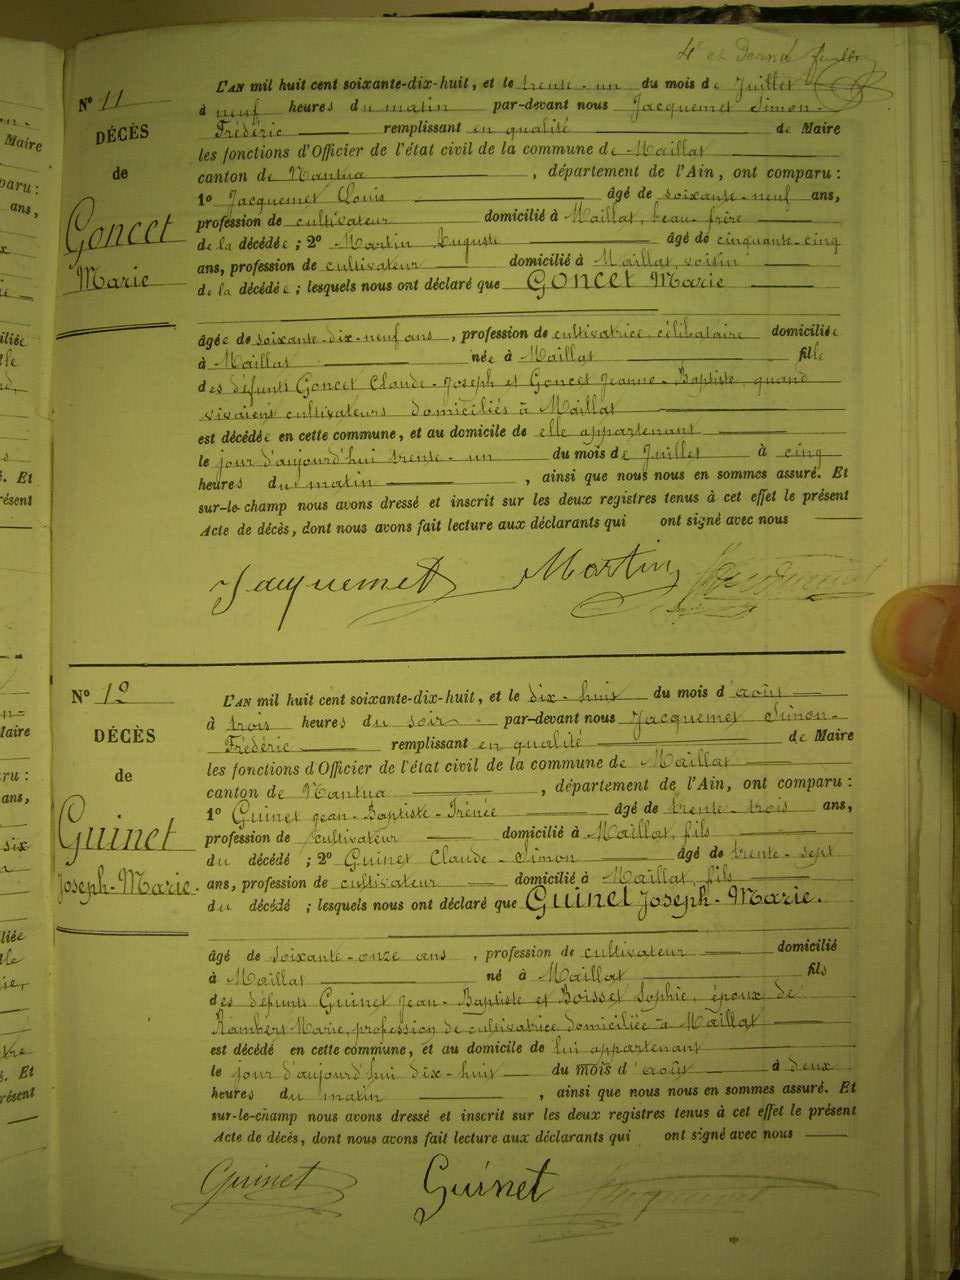 4e et Dernier feuillet
N° 11
DÉCÈS
de
Goncet
Marie
L'AN mil huit cent soixante-dix-huit, et le trente-un du mois de Juillet
à neuf heures du matin par-devant nous Jacquemet Simon-
Frédéric remplissant en qualité de Maire
les fonctions d'Officier de l'état civil de la commune de Maillat
canton de Nantua, département de l'Ain, ont comparu :
1° Jacquemet Louis âgé de soixante-neuf ans,
profession de cultivateur domicilié à Maillat, beau-frère
de la décédée ; 2° Martin Auguste âgé de cinquante-cinq
ans, profession de cultivateur domicilié à Maillat, voisin
de la décédée ; lesquels nous ont déclaré que Goncet Marie
âgée de soixante-dix-neuf ans, profession de cultivatrice, célibataire domiciliée
à Maillat née à Maillat fille
des défunts Goncet Claude-Joseph et Goncet Jeanne-Baptiste, quand
vivaient cultivateurs domiciliés à Maillat
est décédée en cette commune, et au domicile de elle appartenant
le jour d'aujourd'hui trente-un du mois de Juillet à cinq
heures du matin, ainsi que nous nous en sommes assuré. Et
sur-le-champ nous avons dressé et inscrit sur les deux registres tenus à cet effet le présent
Acte de décès, dont nous avons fait lecture aux déclarants qui ont signé avec nous
Jacquemet Martin Jacquemet
N° 12
DÉCÈS
de
Guinet
Joseph-Marie.
L'AN mil huit cent soixante-dix-huit, et le dix-huit du mois d'août
à trois heures du soir par-devant nous Jacquemet Simon-
Frédéric remplissant en qualité de Maire
les fonctions d'Officier de l'état civil de la commune de Maillat
canton de Nantua, département de l'Ain, ont comparu :
1° Guinet Jean-Baptiste-Irénée âgé de trente-trois ans,
profession de cultivateur domicilié à Maillat, fils
du décédé ; 2° Guinet Claude-Simon âgé de trente-sept
ans, profession de cultivateur domicilié à Maillat, fils
du décédé ; lesquels nous ont déclaré que Guinet Joseph-Marie.
âgé de soixante-onze ans, profession de cultivateur domicilié
à Maillat né à Maillat fils
des défunts Guinet Jean-Baptiste et Boisset Sophie, époux de
Rambert Marie, profession de cultivatrice domiciliée à Maillat
est décédé en cette commune, et au domicile de lui appartenant
le jour d'aujourd'hui dix-huit du mois d'août à deux
heures du matin, ainsi que nous nous en sommes assuré. Et
sur-le-champ nous avons dressé et inscrit sur les deux registres tenus à cet effet le présent
Acte de décès, dont nous avons fait lecture aux déclarants qui ont signé avec nous
Guinet Guinet Jacquemet